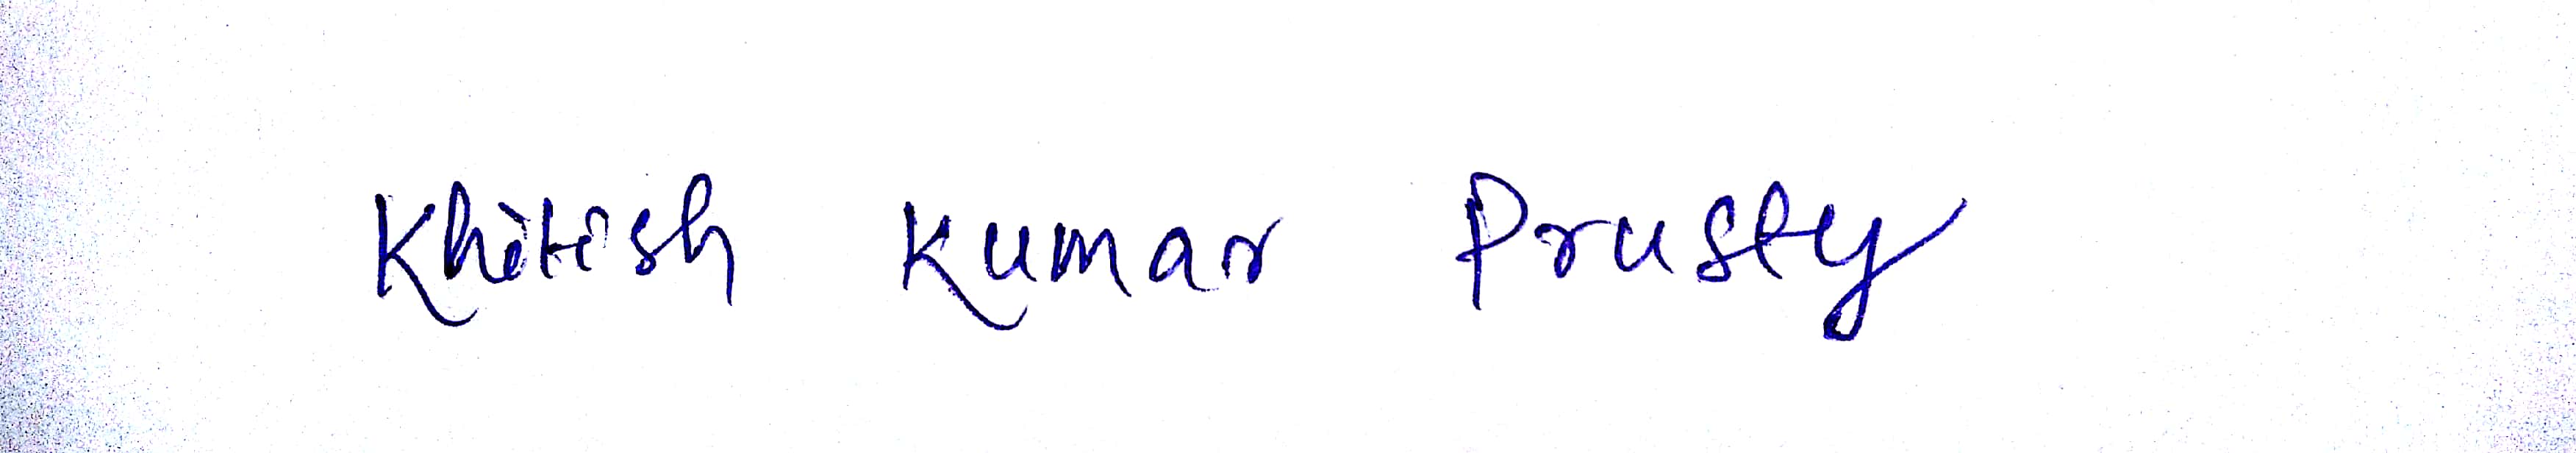 Khitish Kumar Prusty